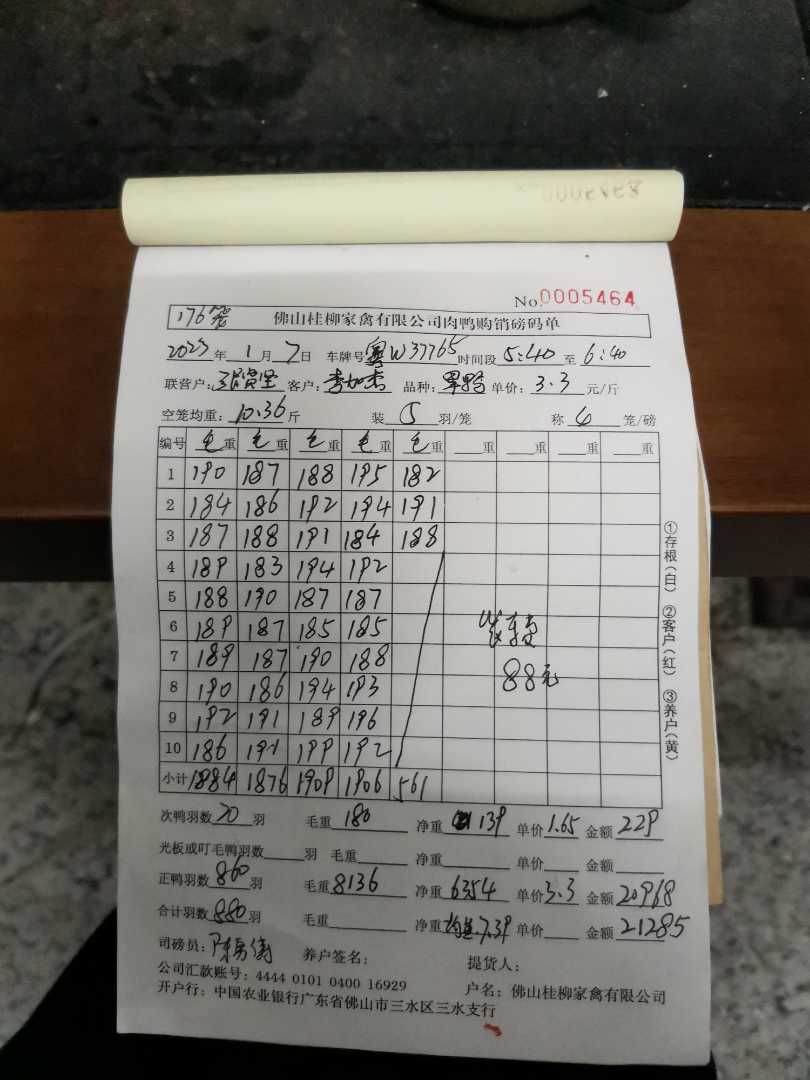 No.0005464
176笼 佛山桂柳家禽有限公司肉鸭购销磅码单
2023年1月7日 车牌号粤W37765 时间段5:40至6:40
联营户: 客户:李加杰 品种: 单价:3.3元/斤
空笼均重:10.36斤 装5羽/笼 称4笼/磅
编号 毛重 毛重 毛重 毛重 毛重 重 重 重 重
1 190 187 188 195 182
2 184 186 192 194 191
3 187 188 191 184 188
4 189 183 194 192
5 188 190 187 187
6 189 187 185 185
7 189 187 190 188
8 190 186 194 193
9 192 191 189 196
10 186 191 199 192
小计 1884 1876 1909 1906 561
装车费
88元
①存根(白) ②客户(红) ③养户(黄)
次鸭羽数20羽 毛重180 净重139 单价1.65 金额229
光板或叮毛鸭羽数 羽 毛重 净重 单价 金额
正鸭羽数860羽 毛重8136 净重6354 单价3.3 金额20968
合计羽数880羽 毛重 净重均重7.39 单价 金额21285
司磅员: 养户签名: 提货人:
公司汇款账号:4444 0101 0400 16929 户名:佛山桂柳家禽有限公司
开户行:中国农业银行广东省佛山市三水区三水支行